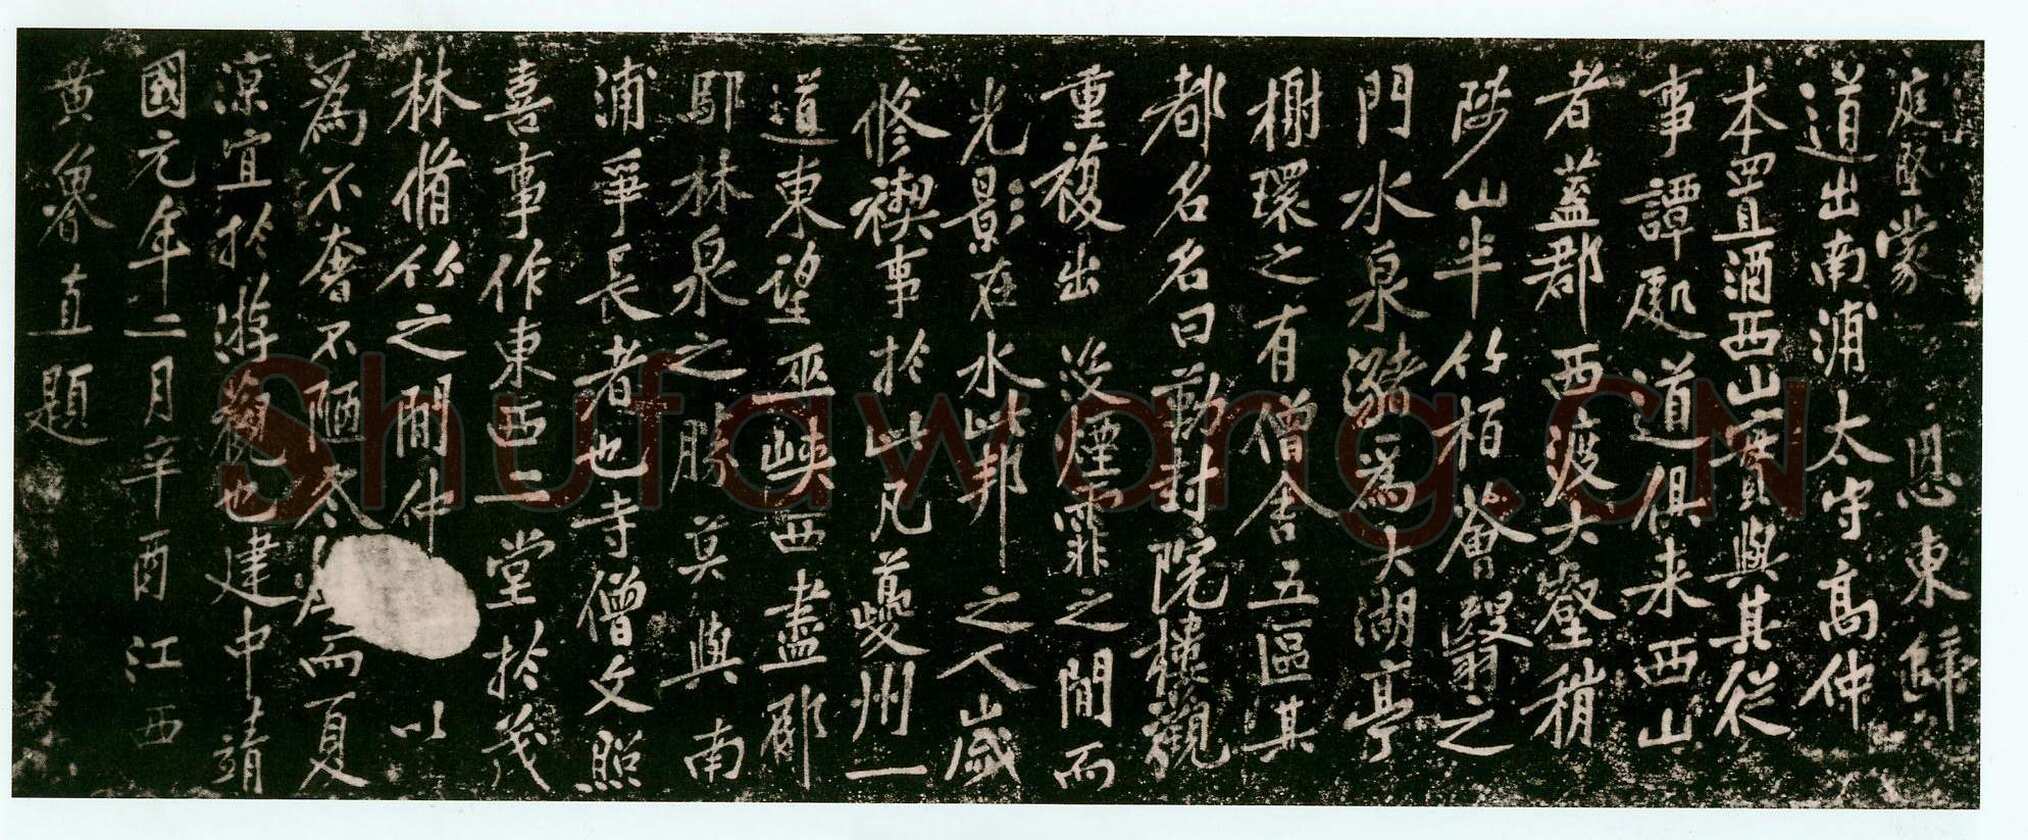 庭堅蒙恩東歸
道出南浦太守高仲
本置酒西山實與其從
事譚處道俱来西山
者蓋郡西渡大壑稍
陟山半竹柏薈翳之
門水泉瀦為大湖亭
榭環之有僧舍五區其
都名名曰勒封院樓觀
重複出没煙霏之間而
光影在水此邦之人歲
修禊事於此凡夔州一
道東望巫峽西盡郁
鄢林泉之勝莫與南
浦爭長者也寺僧文照
喜事作東西二堂於茂
林脩竹之間仲以
為不奢不陋冬而夏
凉宜於游觀也建中靖
國元年二月辛酉江西
黄魯直題
Shufawang.CN